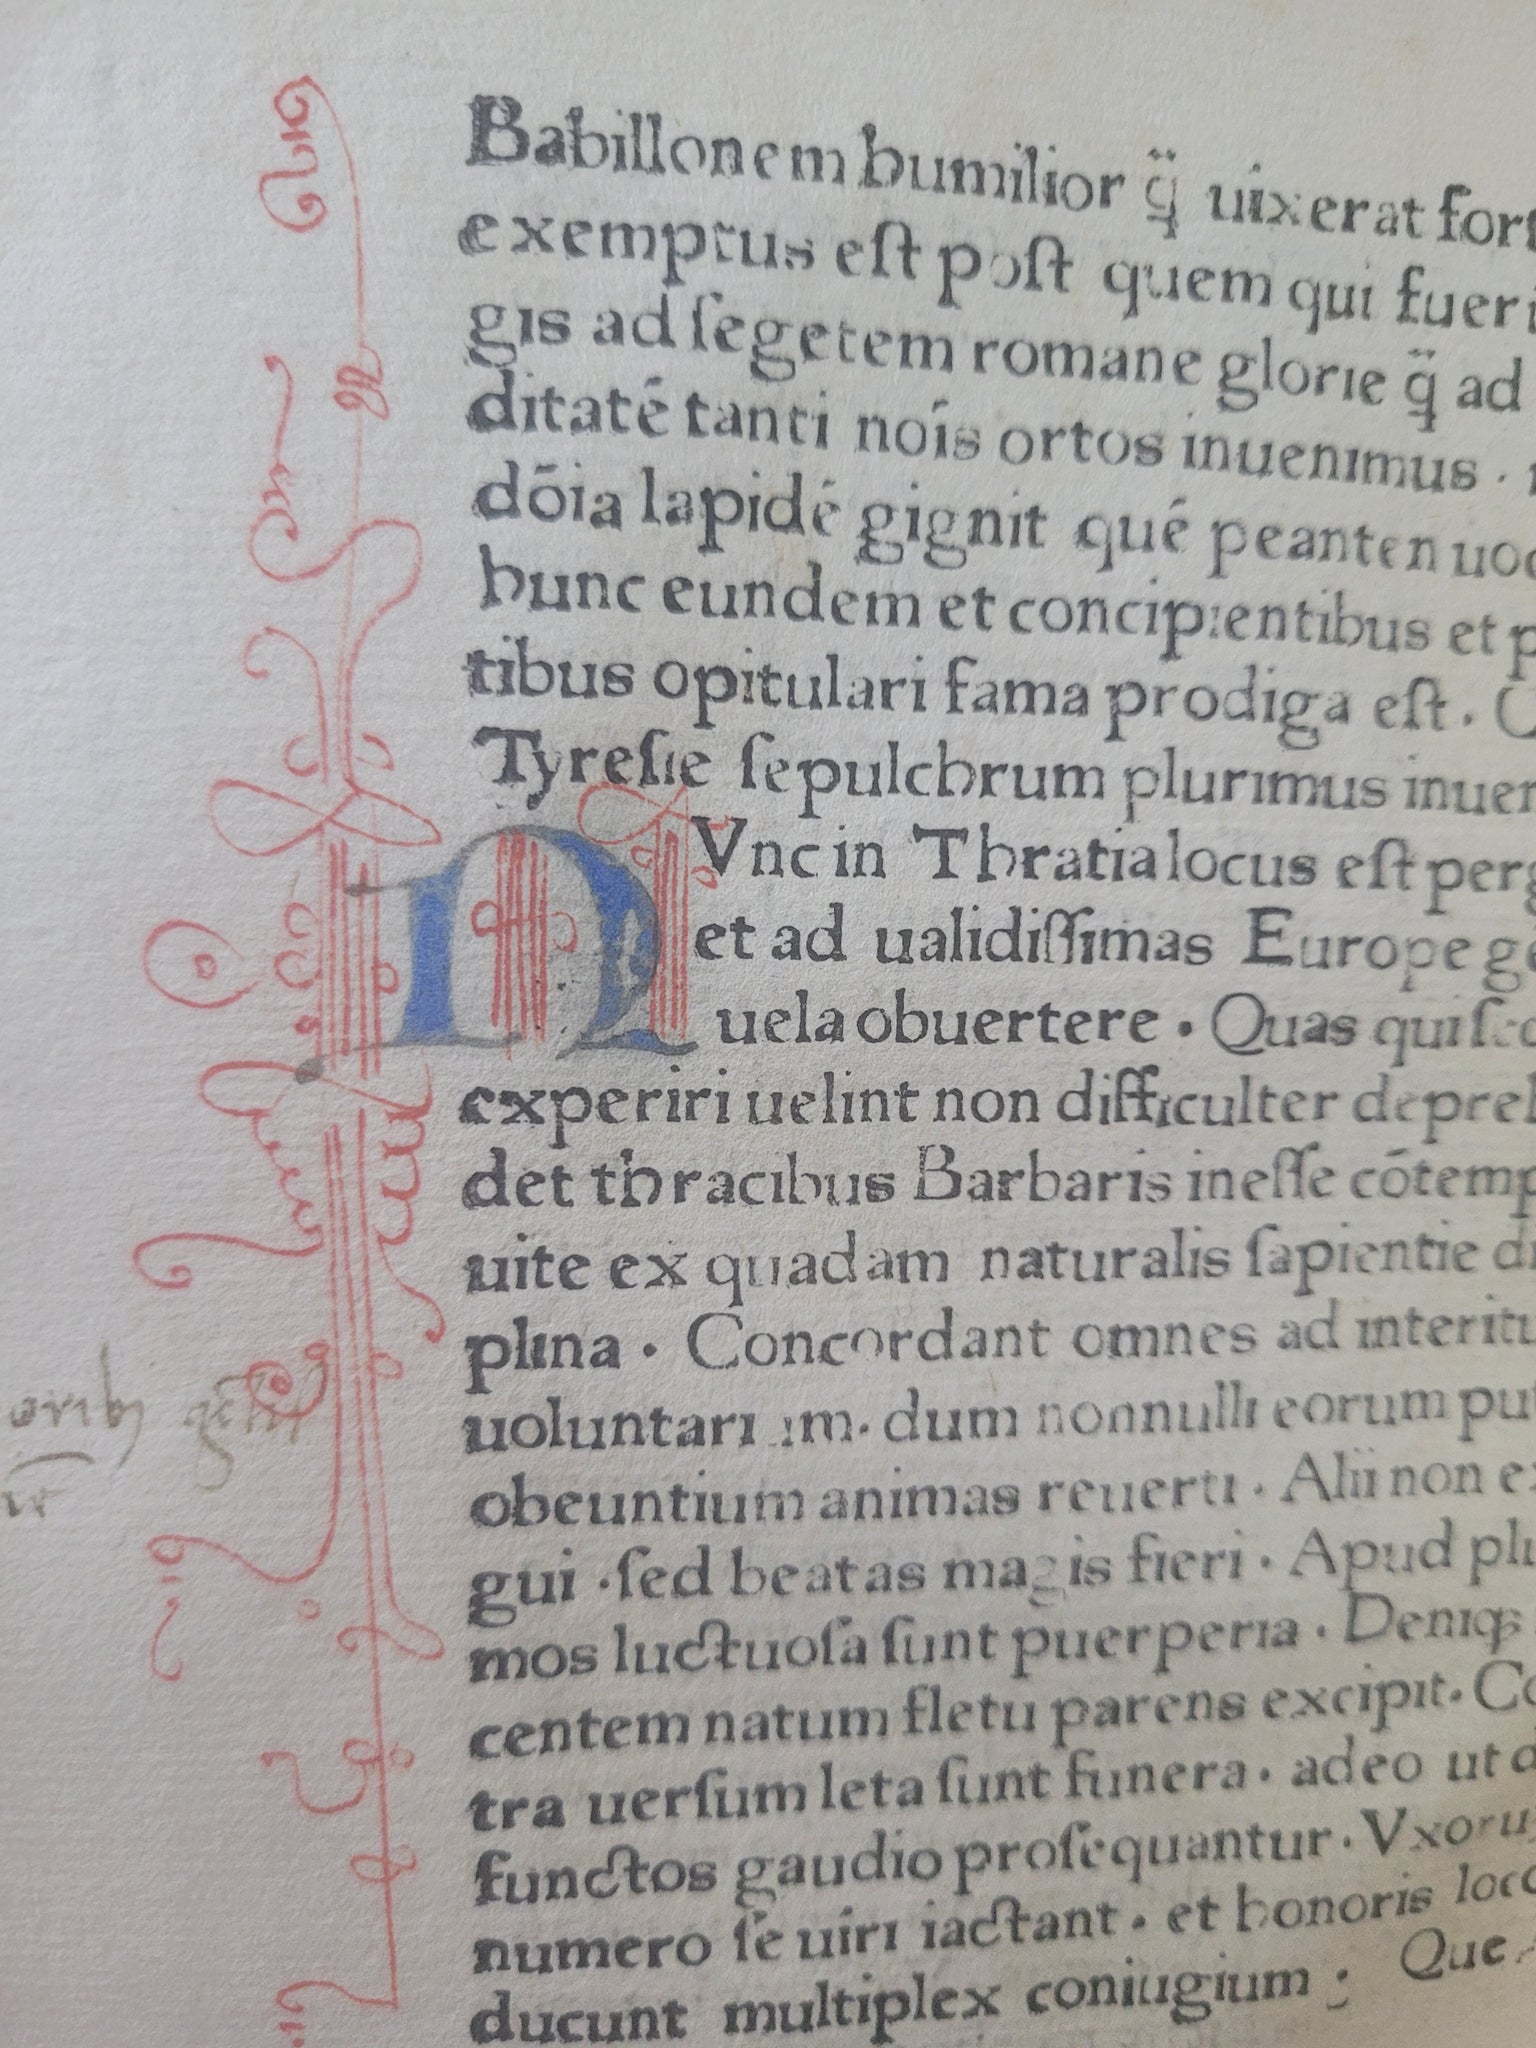 Babillonem humilior q̈ uixerat fort
exemptus eſt poſt quem qui fueri
gis ad ſegetem romane glorie q̈ ad
ditaté tanti noís ortos inuenimus ·
dōia lapidé gignit qué peanten uoc
hunc eundem et concipientibus et p
tibus opitulari fama prodiga eſt . C
Tyreſie ſepulchrum plurimus inuen
N Vnc in Thratia locus eſt perg
et ad ualidiſſimas Europe ge
uela obuertere . Quas qui
experiri uelint non difficulter depreh
det thracibus Barbaris ineſſe cōtemp
uite ex quadam naturalis ſapientie di
plina . Concordant omnes ad interitu
uoluntarium . dum nonnulli eorum put
obeuntium animas reuerti . Alii non ex
gui . ſed beatas magis fieri . Apud plu
mos luctuoſa ſunt puerperia . Deniqꝫ
centem natum fletu parens excipit . Co
tra uerſum leta ſunt funera . adeo ut
functos gaudio proſequantur . Vxoru
numero ſe uiri iactant . et honoris loco
ducunt multiplex coniugium : Que